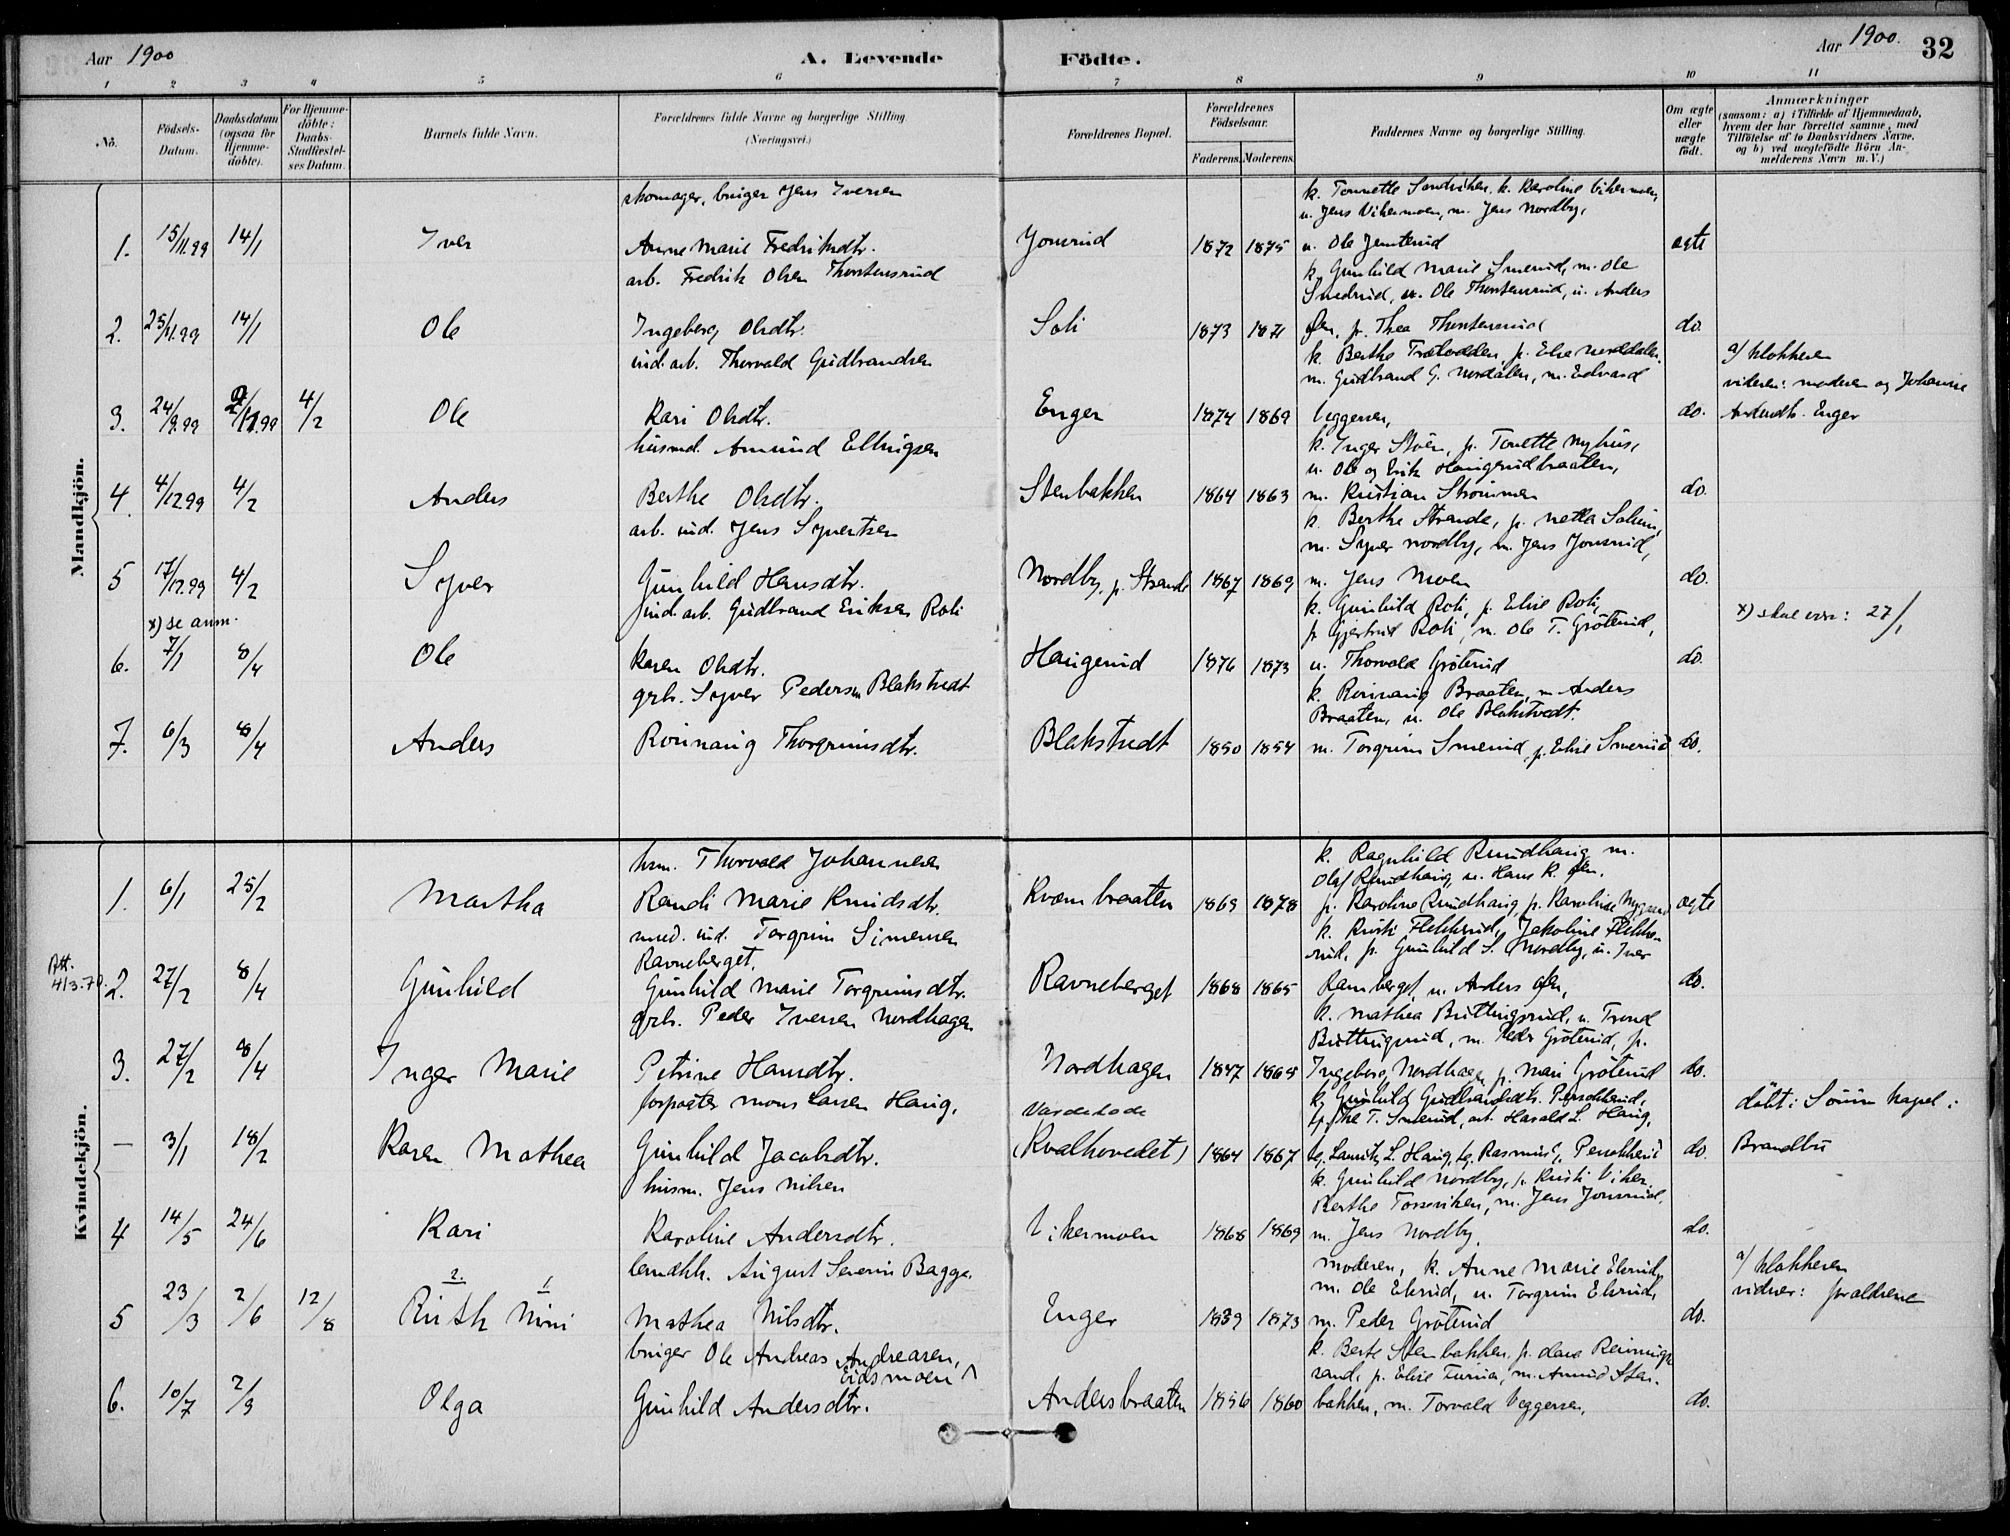 Aar 1900
A. Levende
Födte.
Aar 1900.
32
1 2 3 4 5 6 7 8 9 10 11
No.
Födsels-Datum.
Daabsdatum (ogsaa for Hjemme-döbte).
For Hjemme-döbte: Daabs-Stadfæstel-ses Datum.
Barnets fulde Navn.
Forældrenes fulde Navne og borgerlige Stilling. (Næringsvei.)
Forældrenes Bopæl.
Forældrenes Födselsaar.
Faderens. Moderens.
Faddernes Navne og borgerlige Stilling.
Om ægte eller uægte födt.
Anmærkninger (saasom: a) i Tilfælde af Hjemmedaab, hvem der har forrettet samme, med Tilföielse af to Daabsvidners Navne, og b) ved uægtefödte Börn Anmelderens Navn m. V.)
Mandkjön.
skomager, bruger Jens Iversen
k. Tonnette Sandviken, k. Karoline Vikermoen,
u. Jens Vikermoen, m. Jens Nordby,
1. 15/11.99 14/1 Iver Anne Marie Fredriksdtr. Jonsrud 1872 1875 u. Ole Jemterud ægte
arb. Fredrik Olsen Thorstensrud
k. Gunhild Marie Smerud, m. Ole
Smedrud, u. Ole Thorstensrud, u. Anders
2. 25/11.99 14/1 Ole Ingeborg Olsdtr. Soli 1873 1871 Osen, p. Thea Thorstensrud do.
ind. arb. Thorvald Gudbrandsen
k. Berthe Trælvedden, p. Else Nordalen,
m. Gudbrand G. Nordalen, m. Edvard
a) klokkeren
vidner: moderen og Johanne
3. 24/9.99 2/12.99 4/2 Ole Kari Olsdtr. Enger 1874 1869 Veggersen, do. Andersdtr. Enger
husmd. Amund Ellingsen
k. Inger Støen, p. Tonette Nyhus,
u. Ole og Erik Haugerudbraaten,
4. 4/12.99 4/2 Anders Berthe Olsdtr. Stenbakken 1864 1863 m. Kristian Strømmen do.
arb. ind. Jens Syvertsen
k. Berthe Strande, p. Netta Solum,
m. Syver Nordby, u. Jens Jonsrud,
5 17/12.99 4/2 Syver Gunhild Hansdtr. Nordby, p. Strande 1867 1869 m. Jens Moen do.
x) se anm.
ind. arb. Gudbrand Eriksen Roli
k. Gunhild Roli, p. Elise Roli,
p. Gjertrud Roli, u. Ole T. Grøterud,
x) skal være: 27/1
6. 7/1 8/4 Ole Karen Olsdtr. Haugerud 1876 1873 u. Thorvald Grøterud do.
grb. Syver Pedersen Blakstvedt
k. Rønnaug Braaten, m Anders
Braaten, u. Ole Blakstvedt.
7. 6/3 8/4 Anders Rønnaug Thorgrimsdtr. Blakstvedt 1850 1854 m. Torgrim Smerud, p. Elise Smerud do.
Kvindekjön.
hsm. Thorvald Johannesen
k. Ragnhild Rundhaug m.
Olaf Rundhaug, u. Hans K. Osen.
1. 6/1 25/2 Martha Randi Marie Knudsdtr. Kvernbraaten 1869 1878 p. Karoline Rundhaug, p. Karoline Nygaard ægte
smed. ind. Torgrim Simensen
Ravneberget.
k. Kristi Flekkerud, Jakoline Flekke-
rud, p. Gunhild S. Nordby, u. Iver
Att.
4/3.70.
2. 27/2 8/4 Gunhild Gunhild Marie Torgrimsdtr. Ravneberget 1868 1865 Ramberget, u. Anders Osen, do.
grb. Peder Iversen Nordhagen
k. Mathea Buttingsrud, u. Trond
Buttingsrud, m. Peder Grøterud, p.
3. 27/2 8/4 Inger Marie Petrine Hansdtr. Nordhagen 1847 1865 Ingeborg Nordhagen p. Mari Grøterud do.
forpagter Mons Larsen Haug.
Vasdekode
k. Gunhild Gudbrandsdtr. Persokkerud,
T. Smerud, arb. Harald L. Haug,
døbt i Sørum kapel i
— 3/1 18/2 Karen Mathea Gunhild Jacobsdtr. (Kvalhovedet) 1864 1867 g. Lauritz L. Haug, g. Rasmus Persokkerud do. Brandbu
husm. Jens Nilsen
k. Gunhild Nordby, p. Kristi Viker
Berthe Tosseviken, m. Jens Jonsrud.
4 14/5 24/6 Kari Karoline Andersdtr. Vikermoen 1868 1869 m. Jens Nordby. do.
landhh. August Severin Bagge.
moderen, k. Anne Marie Elsrud,
m. Ole Elsrud, u. Torgrim Elsrud,
a) klokkeren
vidner: forældrene
2. 1.
5 23/3 2/6 12/8 Ruth Nini Mathea Nilsdtr. Enger 1839 1873 m. Peder Grøterud do.
bruger Ole Andreas Andreasen,
Eidsmoen ^
k. Berte Stenbakken, p.
sand, p. Elise m. Amund Sten-
6. 10/7 2/9 Olga Gunhild Andersdtr. Andersbraaten 1856 1860 bakken, m. Torvald Veggersen, do.